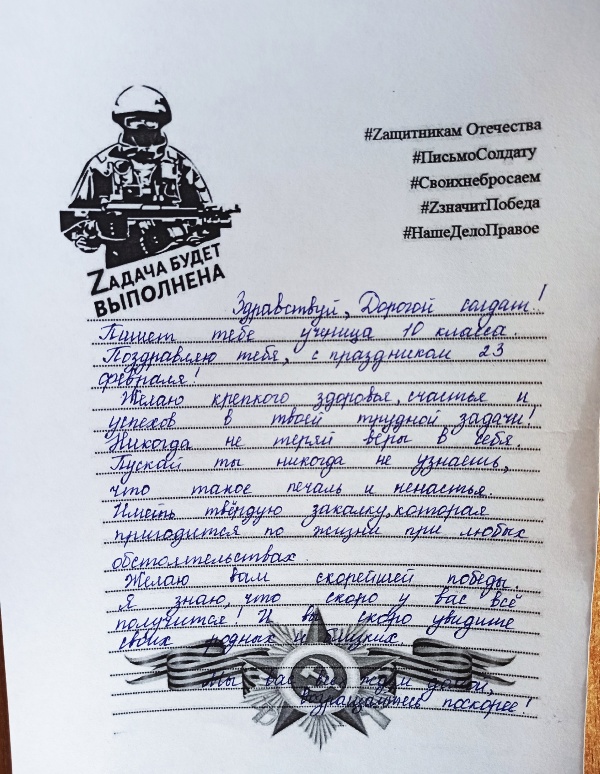 #Zащитникам Отечества
#ПисьмоСолдату
#Своихнебросаем
#ZзначитПобеда
#НашеДелоПравое
ZАДАЧА БУДЕТ
ВЫПОЛНЕНА
Здравствуй, Дорогой солдат!
Пишет тебе ученица 10 класса.
Поздравляю тебя, с праздником 23
февраля!
Желаю крепкого здоровья, счастья и
успехов в твоей трудной задачи!
Никогда не теряй веры в себя.
Пускай ты никогда не узнаешь,
что такое печаль и ненастья.
Иметь твёрдую закалку, которая
пригодится по жизни при любых
обстоятельствах
Желаю вам скорейшей победы,
я знаю, что скоро у вас всё
получится! И вы скоро увидите
своих родных и близких.
Мы вас все ждём домой,
возвращайтесь поскорее!